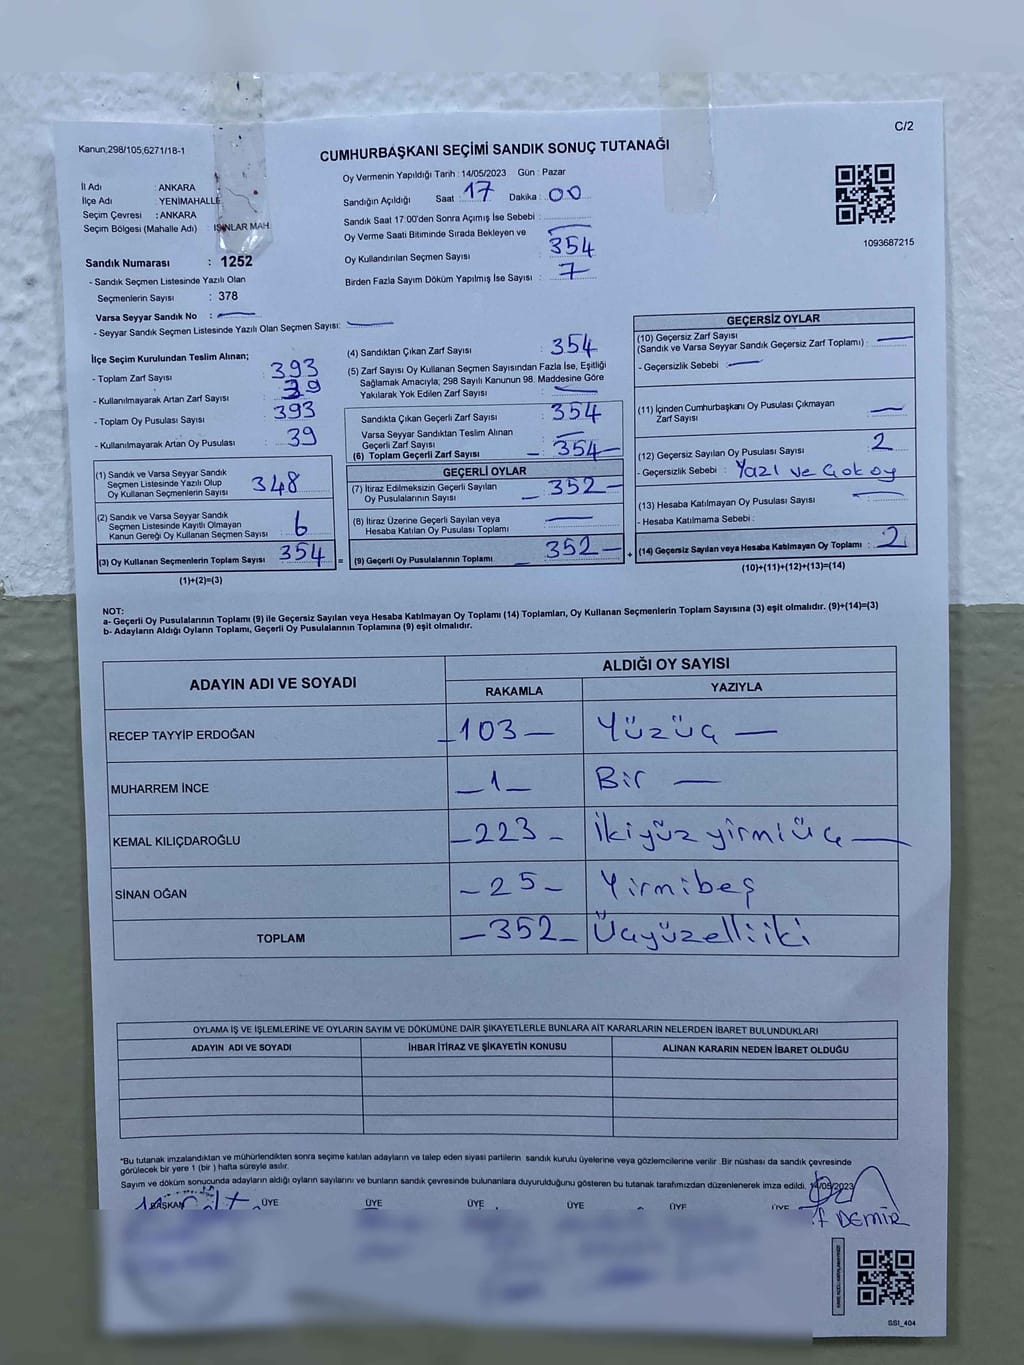 C/2
Kanun;298/105;6271/18-1
CUMHURBAŞKANI SEÇİMİ SANDIK SONUÇ TUTANAĞI
Oy Vermenin Yapıldığı Tarih : 14/05/2023 Gün : Pazar
İl Adı : ANKARA
İlçe Adı : YENİMAHALLE
Seçim Çevresi : ANKARA
Seçim Bölgesi (Mahalle Adı) IŞINLAR MAH
Sandığın Açıldığı Saat : 17 Dakika : 00
Sandık Saat 17:00'den Sonra Açımış İse Sebebi :
Oy Verme Saati Bitiminde Sırada Bekleyen ve
Oy Kullandırılan Seçmen Sayısı : 354
Birden Fazla Sayım Döküm Yapılmış İse Sayısı : 7
1093687215
Sandık Numarası : 1252
- Sandık Seçmen Listesinde Yazılı Olan
Seçmenlerin Sayısı : 378
Varsa Seyyar Sandık No :
- Seyyar Sandık Seçmen Listesinde Yazılı Olan Seçmen Sayısı:
İlçe Seçim Kurulundan Teslim Alınan;
- Toplam Zarf Sayısı : 393
- Kullanılmayarak Artan Zarf Sayısı : 39
- Toplam Oy Pusulası Sayısı : 393
- Kullanılmayarak Artan Oy Pusulası : 39
(1) Sandık ve Varsa Seyyar Sandık
Seçmen Listesinde Yazılı Olup
Oy Kullanan Seçmenlerin Sayısı : 348
(2) Sandık ve Varsa Seyyar Sandık
Seçmen Listesinde Kayıtlı Olmayan
Kanun Gereği Oy Kullanan Seçmen Sayısı : 6
(3) Oy Kullanan Seçmenlerin Toplam Sayısı : 354
(1)+(2)=(3)
(4) Sandıktan Çıkan Zarf Sayısı : 354
(5) Zarf Sayısı Oy Kullanan Seçmen Sayısından Fazla İse, Eşitliği
Sağlamak Amacıyla; 298 Sayılı Kanunun 98. Maddesine Göre
Yakılarak Yok Edilen Zarf Sayısı :
Sandıkta Çıkan Geçerli Zarf Sayısı : 354
Varsa Seyyar Sandıktan Teslim Alınan
Geçerli Zarf Sayısı
(6) Toplam Geçerli Zarf Sayısı : 354
GEÇERLİ OYLAR
(7) İtiraz Edilmeksizin Geçerli Sayılan
Oy Pusulalarının Sayısı : 352
(8) İtiraz Üzerine Geçerli Sayılan veya
Hesaba Katılan Oy Pusulası Toplamı :
= (9) Geçerli Oy Pusulalarının Toplamı : 352
GEÇERSİZ OYLAR
(10) Geçersiz Zarf Sayısı
(Sandık ve Varsa Seyyar Sandık Geçersiz Zarf Toplamı) :
- Geçersizlik Sebebi :
(11) İçinden Cumhurbaşkanı Oy Pusulası Çıkmayan
Zarf Sayısı :
(12) Geçersiz Sayılan Oy Pusulası Sayısı : 2
- Geçersizlik Sebebi : Yazı ve Çok oy
(13) Hesaba Katılmayan Oy Pusulası Sayısı :
- Hesaba Katılmama Sebebi :
+ (14) Geçersiz Sayılan veya Hesaba Katılmayan Oy Toplamı : 2
(10)+(11)+(12)+(13)=(14)
NOT:
a- Geçerli Oy Pusulalarının Toplamı (9) ile Geçersiz Sayılan veya Hesaba Katılmayan Oy Toplamı (14) Toplamları, Oy Kullanan Seçmenlerin Toplam Sayısına (3) eşit olmalıdır. (9)+(14)=(3)
b- Adayların Aldığı Oyların Toplamı, Geçerli Oy Pusulalarının Toplamına (9) eşit olmalıdır.
ADAYIN ADI VE SOYADI
ALDIĞI OY SAYISI
RAKAMLA YAZIYLA
RECEP TAYYİP ERDOĞAN 103 Yüzüç
MUHARREM İNCE 1 Bir
KEMAL KILIÇDAROĞLU 223 İkiyüz yirmi üç
SİNAN OĞAN 25 Yirmibeş
TOPLAM 352 Üçyüzelliiki
OYLAMA İŞ VE İŞLEMLERİNE VE OYLARIN SAYIM VE DÖKÜMÜNE DAİR ŞİKAYETLERLE BUNLARA AİT KARARLARIN NELERDEN İBARET BULUNDUKLARI
ADAYIN ADI VE SOYADI İHBAR İTİRAZ VE ŞİKAYETİN KONUSU ALINAN KARARIN NEDEN İBARET OLDUĞU
*Bu tutanak imzalandıktan ve mühürlendikten sonra seçime katılan adayların ve talep eden siyasi partilerin sandık kurulu üyelerine veya gözlemcilerine verilir .Bir nüshası da sandık çevresinde
görülecek bir yere 1 (bir ) hafta süreyle asılır.
Sayım ve döküm sonucunda adayların aldığı oyların sayılarını ve bunların sandık çevresinde bulunanlara duyurulduğunu gösteren bu tutanak tarafımızdan düzenlenerek imza edildi. 14/05/2023
BAŞKAN ÜYE ÜYE ÜYE ÜYE ÜYE ÜYE
DEMİR
SSI_404